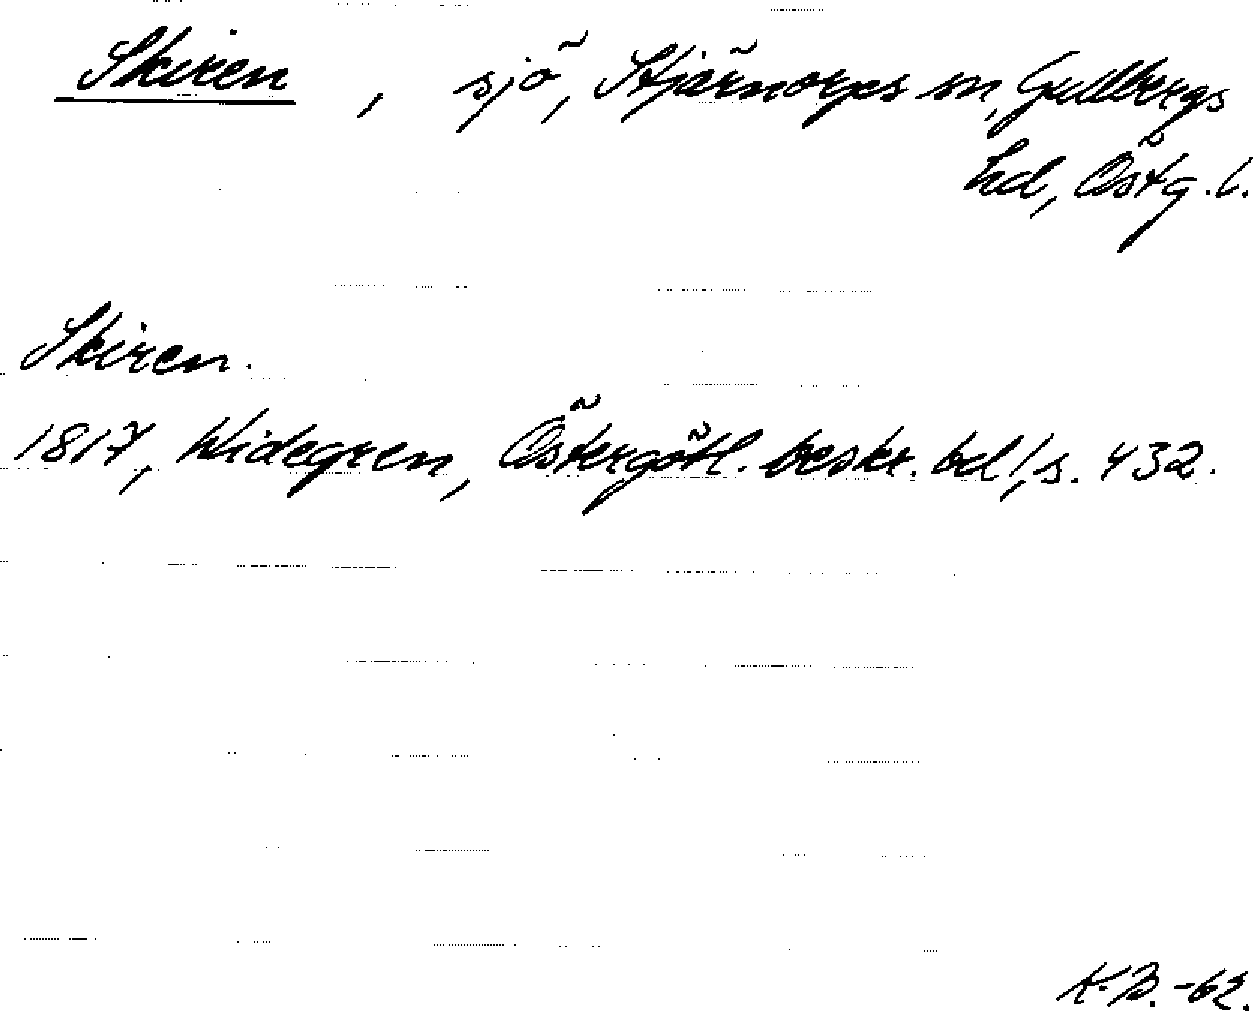 Skiren, sjö, Stjärnorps sn, Gullbergs
hd, Östg.l.
Skiren.
1817, Widegren, Östergötl. beskr. bd 1, s. 432.
K.B.-62.